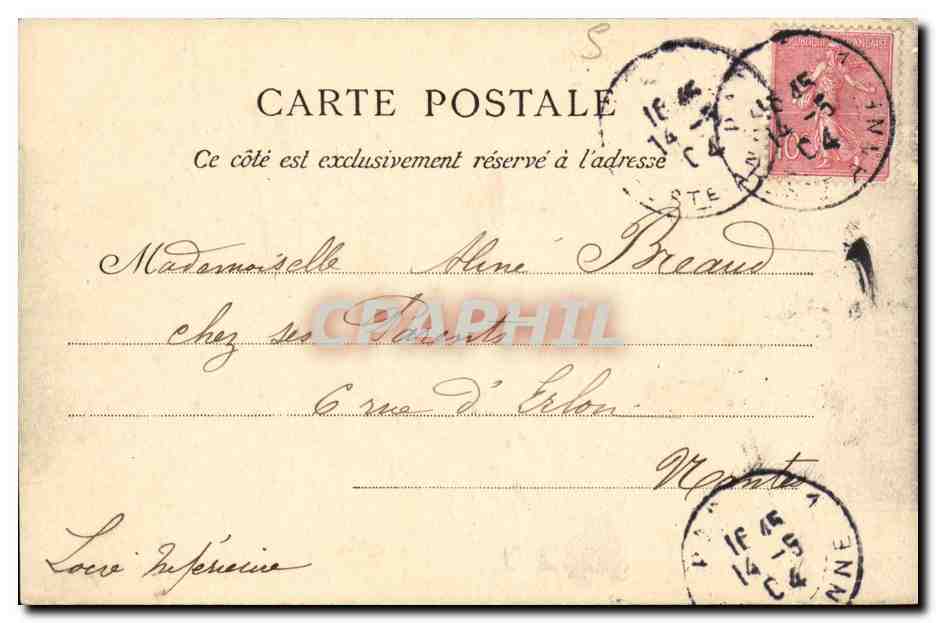 5
CARTE POSTALE
Ce côté est exclusivement réservé à l'adresse
RÉPUBLIQUE FRANÇAISE
10
16 45
14 -5
04
STE ANNE
16 45
14 -5
04
Mademoiselle Aline Breaud
chez ses Parents
CPAPHIL
6 rue d'Erlon
Nantes
Loire Inférieure
16 45
14 -5
04